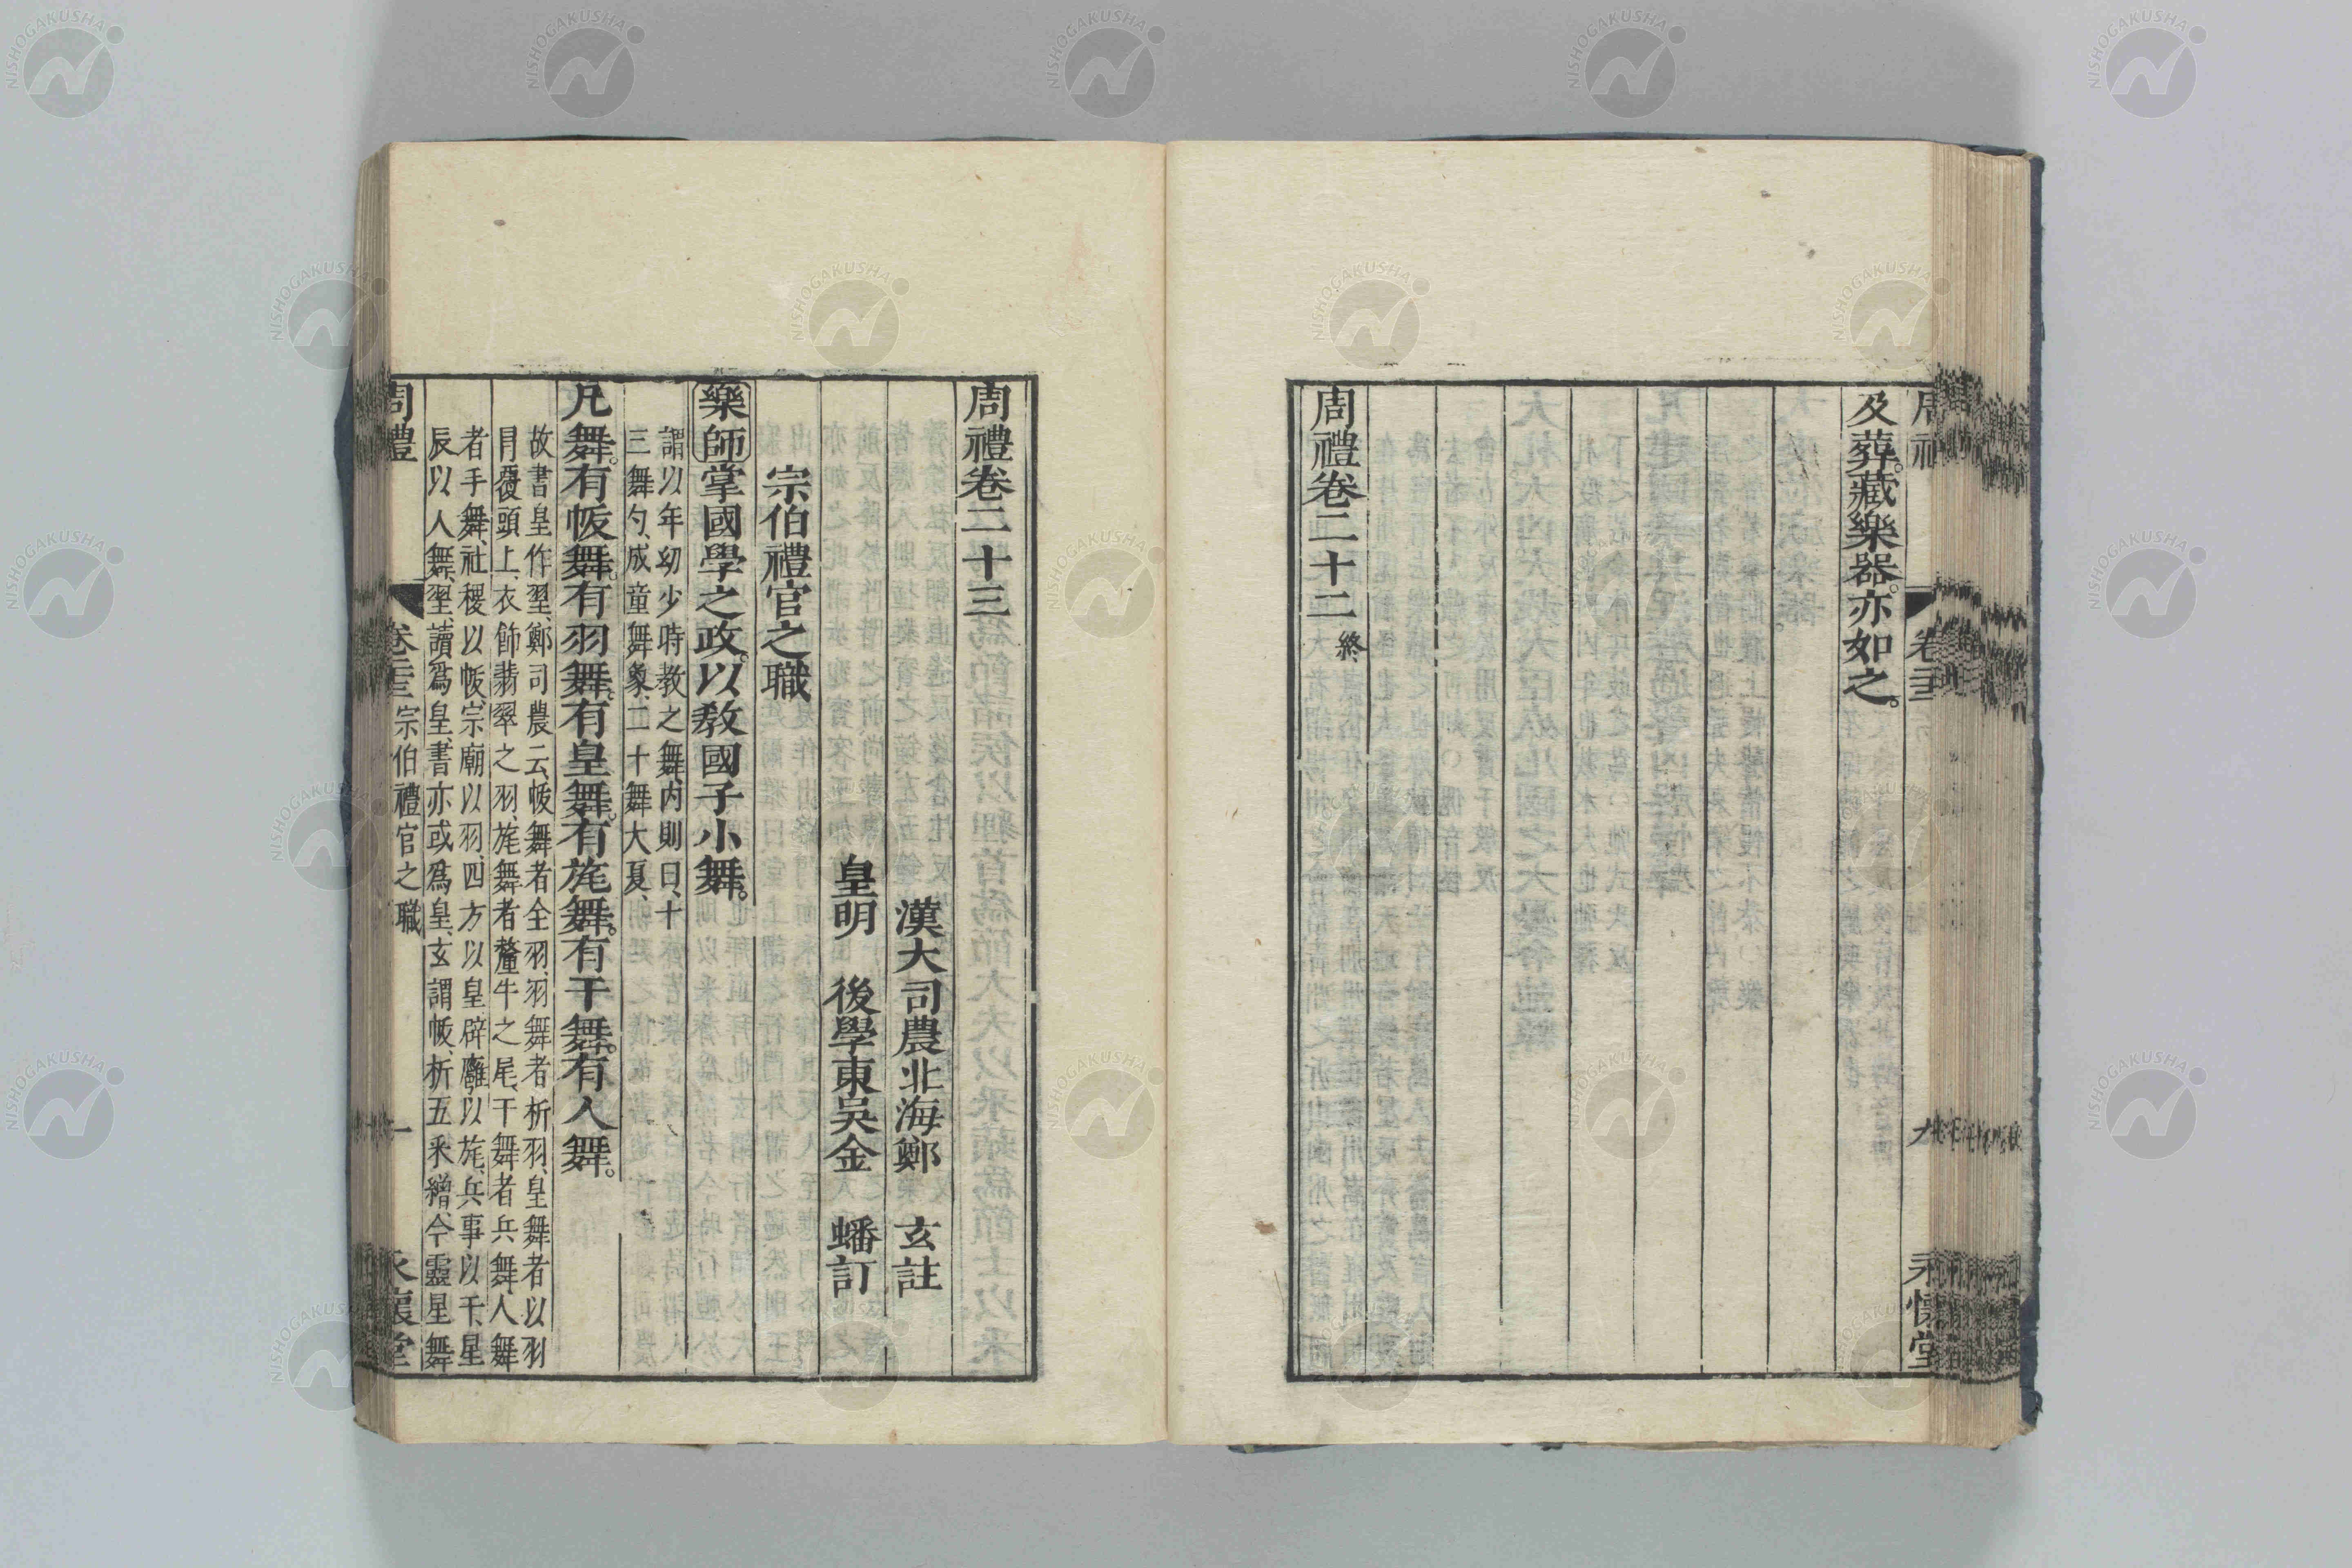 及葬。藏樂器。亦如之。
周禮卷二十二終
永懷堂
周禮卷二十三
漢大司農北海鄭 玄註
皇明 後學東吳金 蟠訂
宗伯禮官之職
樂師掌國學之政。以教國子小舞。
謂以年幼少時教之舞、内則曰、十
三舞勺、成童舞象、二十舞大夏、
凡舞。有帗舞。有羽舞。有皇舞。有旄舞。有干舞。有人舞。
故書皇作䍿、鄭司農云、帗舞者全羽、羽舞者析羽、皇舞者以羽
冐覆頭上、衣飾翡翠之羽、旄舞者氂牛之尾、干舞者兵舞、人舞
者手舞、社稷以帗、宗廟以羽、四方以皇、辟廱以旄、兵事以干、星
辰以人舞、䍿、讀爲皇、書亦或爲皇、玄謂帗、析五采繒、今靈星舞
周禮 卷二十三 宗伯禮官之職 一 永懷堂
NISHOGAKUSHA